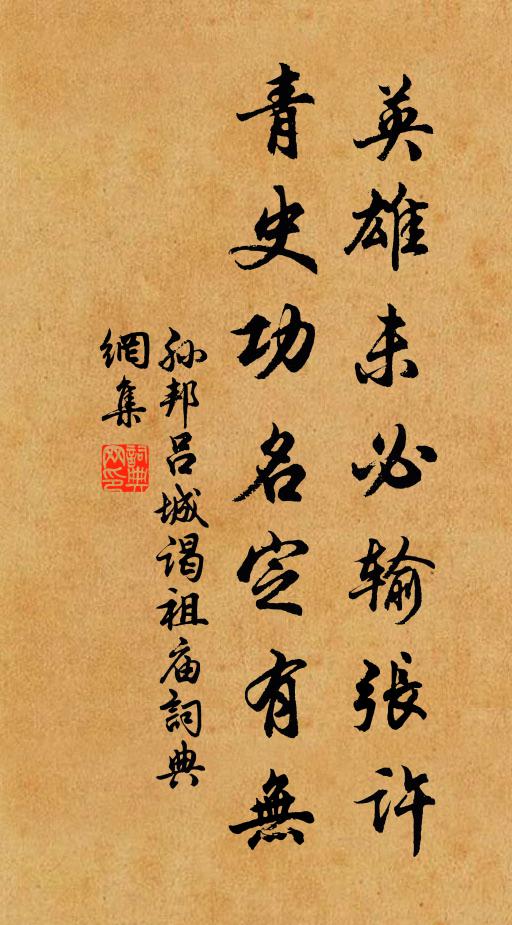 英雄未必输張許
青史功名定有無
孙邦吕城谒祖庙詞典
網集
詞典網印